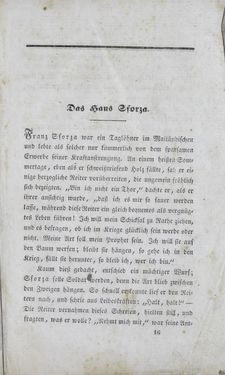 Das Haus Sforza.
Franz Sforza war ein Taglöhner im Mailändischen
und lebte als solcher nur kümmerlich von dem sparsamen
Erwerbe seiner Kraftanstrengung. An einem heißen Som-
mertage, eben als er schweißtriefend Holz fällte, sah er
herzogliche Reiter vorüberreiten, die ungemein fröhlich
sich bezeigten. „Bin ich nicht ein Thor,“ dachte er, als er
ihrer ansichtig wurde, „daß ich es mir so sauer werden
lasse, während diese Reiter ein gleich bequemes als vergnüg-
tes Leben führen! Ich will mein Schicksal zu Rathe ziehen,
und es befragen, ob ich im Kriege glücklich sein werde oder
nicht. Meine Art soll mein Prophet sein. Ich will sie auf
den Baum werfen; bleibt sie hängen, so gehe ich in den
Krieg, fällt sie herunter, so bleib ich, wer ich bin.“
Kaum dies gedacht, entschied ein mächtiger Wurf;
Sforza solle Soldat werden, denn die Art blieb zwischen
den Zweigen hängen. So schnell entkernt lief er den Rei-
tern nach, und schrie aus Leibeskräften: „Halt, halt!“ —
Die Reiter vernahmen dieses Schreien, hielten still, und
fragten, was er wolle? „Nehmt mich mit,“ war seine Ant-
16